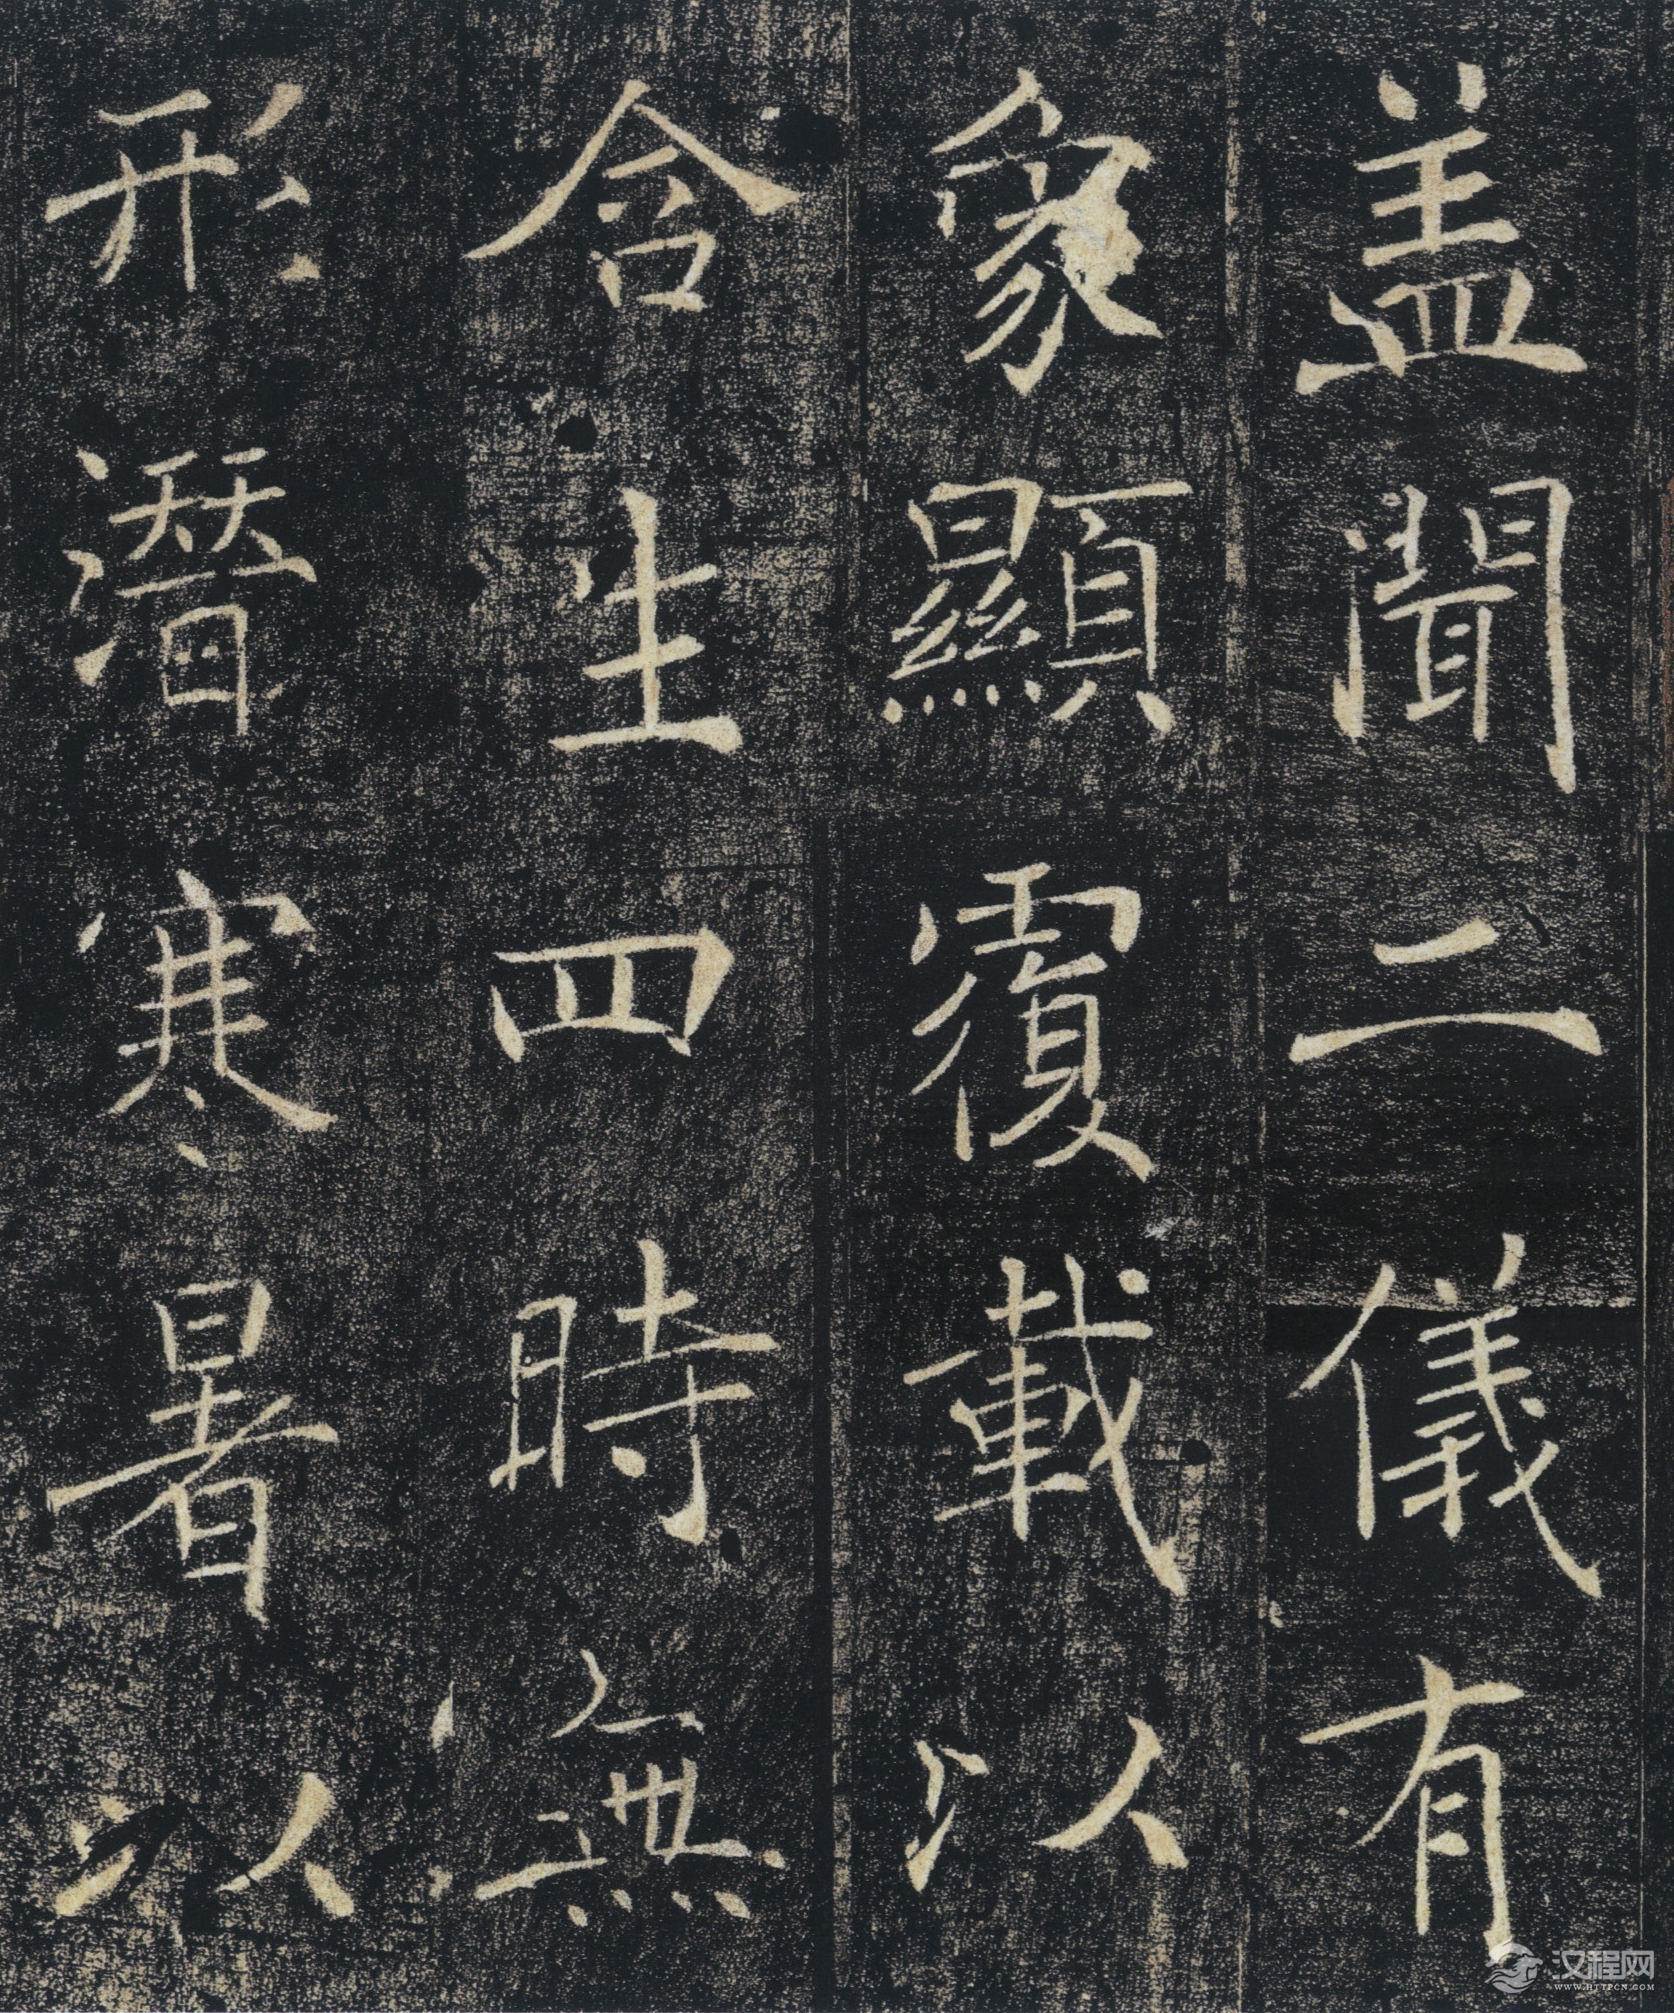 盖聞二儀有
象顯覆載以
含生四時無
形潛寒暑以
汉程网
WWW.HTTPCN.COM